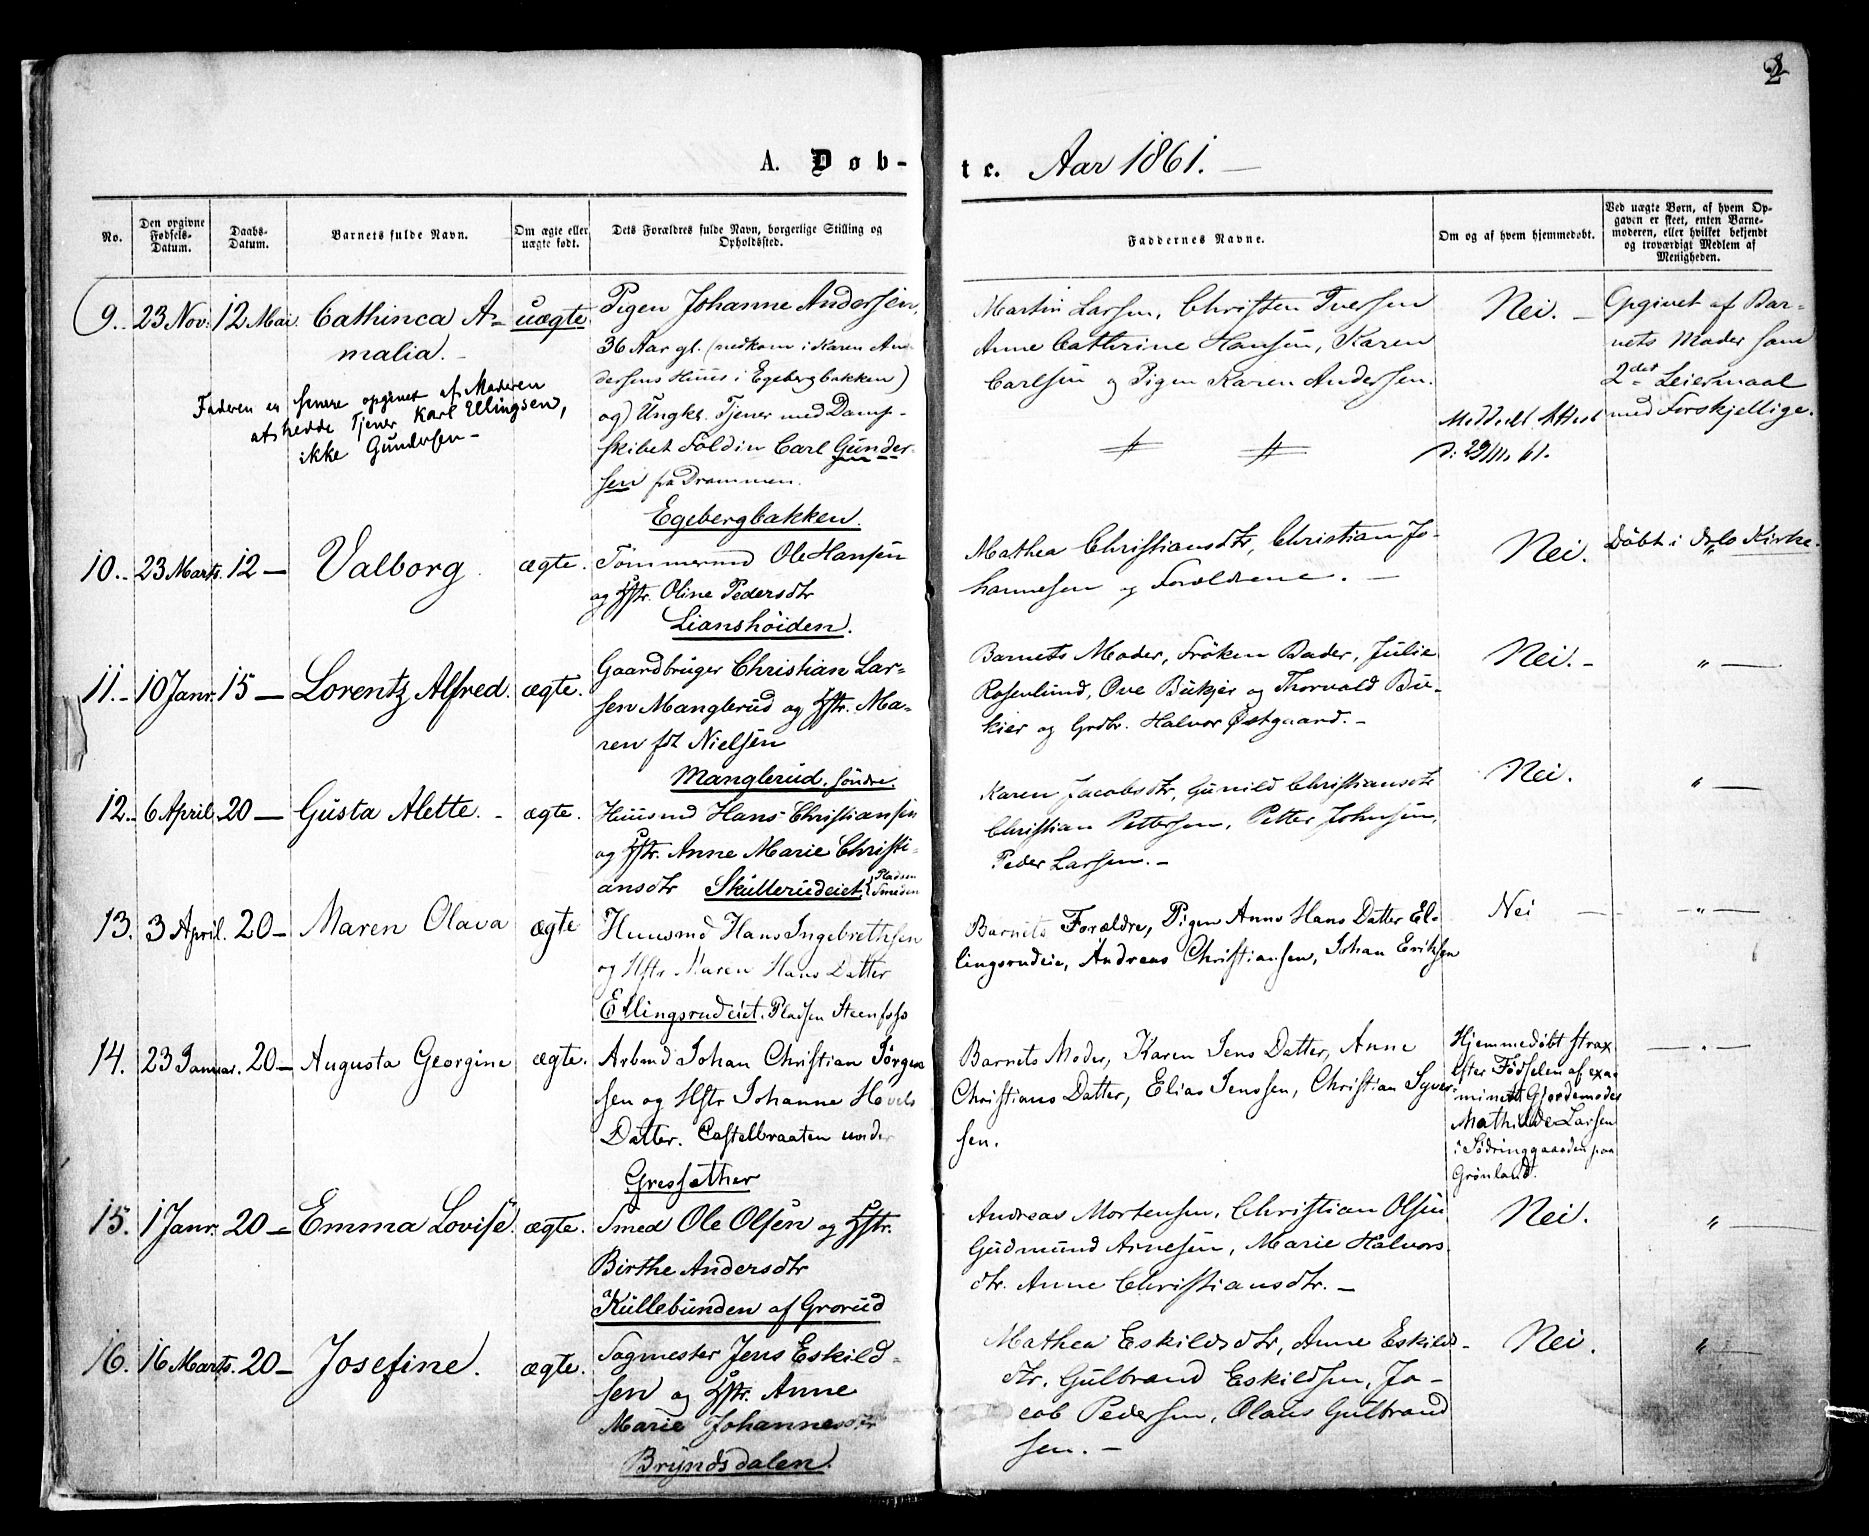 2
A. Døb-
te. Aar 1861.
No.
Den opgivne Fødsels-Datum.
Daabs-Datum.
Barnets fulde Navn.
Om ægte eller uægte født.
Dets Forældres fulde Navn, borgerlige Stilling og Opholdssted.
Faddernes Navne.
Om og af hvem hjemmedøbt.
Ved uægte Børn, af hvem Opgaven er skeet, enten Barnemoderen, eller hvilket bekjendt og troværdigt Medlem af Menigheden.
9. 23 Nov. 12 Mai Cathinca A- uægte
malia.
Faderen er senere opgivet af Moderen
at hedde Tjener Karl Ellingsen,
ikke Gundersen
Pigen Johanne Andersen,
36 Aar gl. (nedkom i Karen An
dersens Huus i Egebergbakken)
og) Ungkl. Tjener med Damp-
skibet Foldin Carl Gunder-
sen fra Drammen.
Egebergbakken.
Martin Larsen, Christen Iversen
Anne Cathrine Hansen, Karen
Carlsen og Pigen Karen Andersen.
Nei.
Meddeelt Attest
d: 29/11. 61.
Opgivet af Bar-
nets Moder som
2det Leiermaal
med Forskjellige.
10. 23 Marts. 12 — Valborg ægte.
Tømmermd Ole Hansen
og Hstr. Oline Pedersdtr
Lianshøiden.
Mathea Christiansdtr, Christian Jo-
hannesen og Forældrene.
Nei.
Døbt i Oslo Kirke.
11. 10 Janr. 15 — Lorentz Alfred. ægte.
Gaardbruger Christian Lar-
sen Manglerud og Hstr. Ma-
ren fdt Nielsen
Manglerud, søndre.
Barnets Moder, Frøken Bader, Julie
Rosenlund, Ove Bukier og Thorvald Bu-
kier og Grdbr. Halvor Østgaard.
Nei. — " —
12. 6 April. 20 — Gusta Alette. ægte.
Huusmd Hans Christiansen
og Hstr. Anne Marie Christi-
ansdtr Skullerudeiet, Pladsen Smeden
Karen Jacobsdtr, Gunild Christiansdtr
Christian Pettersen, Petter Johnsen,
Peder Larsen.
Nei. " —
13. 3 April. 20 — Maren Olava ægte
Huusmd Hans Ingebrethsen
og Hstr Maren Hans Datter
Ellingsrudeiet. Pladsen Steenfoss
Barnets Forældre, Pigen Anne Hans Datter El-
lingsrudeie, Andreas Christiansen, Johan Eriksen
Nei — " —
14. 23 Januar. 20 — Augusta Georgine ægte.
Arbmd Johan Christian Jørgen
sen og Hstr Johanne Hovels
Datter. Castelbraaten under
Gresfæther
Barnets Moder, Karen Jens Datter, Anne
Christians Datter, Elias Jenssen, Christian Syver-
sen.
Hjemmedøbt strax
efter Fødselen af exa-
mineret Gjordemoder
Mathilde Larsen
i Sødringgaarden paa
Grønland.
— " —
15. 1 Janr. 20 — Emma Lovise. ægte.
Smed Ole Olsen og Hstr.
Birthe Andersdtr
Kullebunden af Grorud
Andreas Mortensen, Christian Olsen
Gudmund Arnesen, Marie Halvors
dtr. Anne Christiansdtr. —
Nei. " —
16. 16 Marts. 20 — Josefine. ægte.
Sagmester Jens Eskild-
sen og Hstr. Anne
Marie Johannesdtr
Bryndsdalen.
Mathea Eskildsdtr, Anne Eskilds-
dtr. Gulbrand Eskildsen, Ja-
cob Pedersen, Olaus Gulbrand
sen. —
Nei. " —